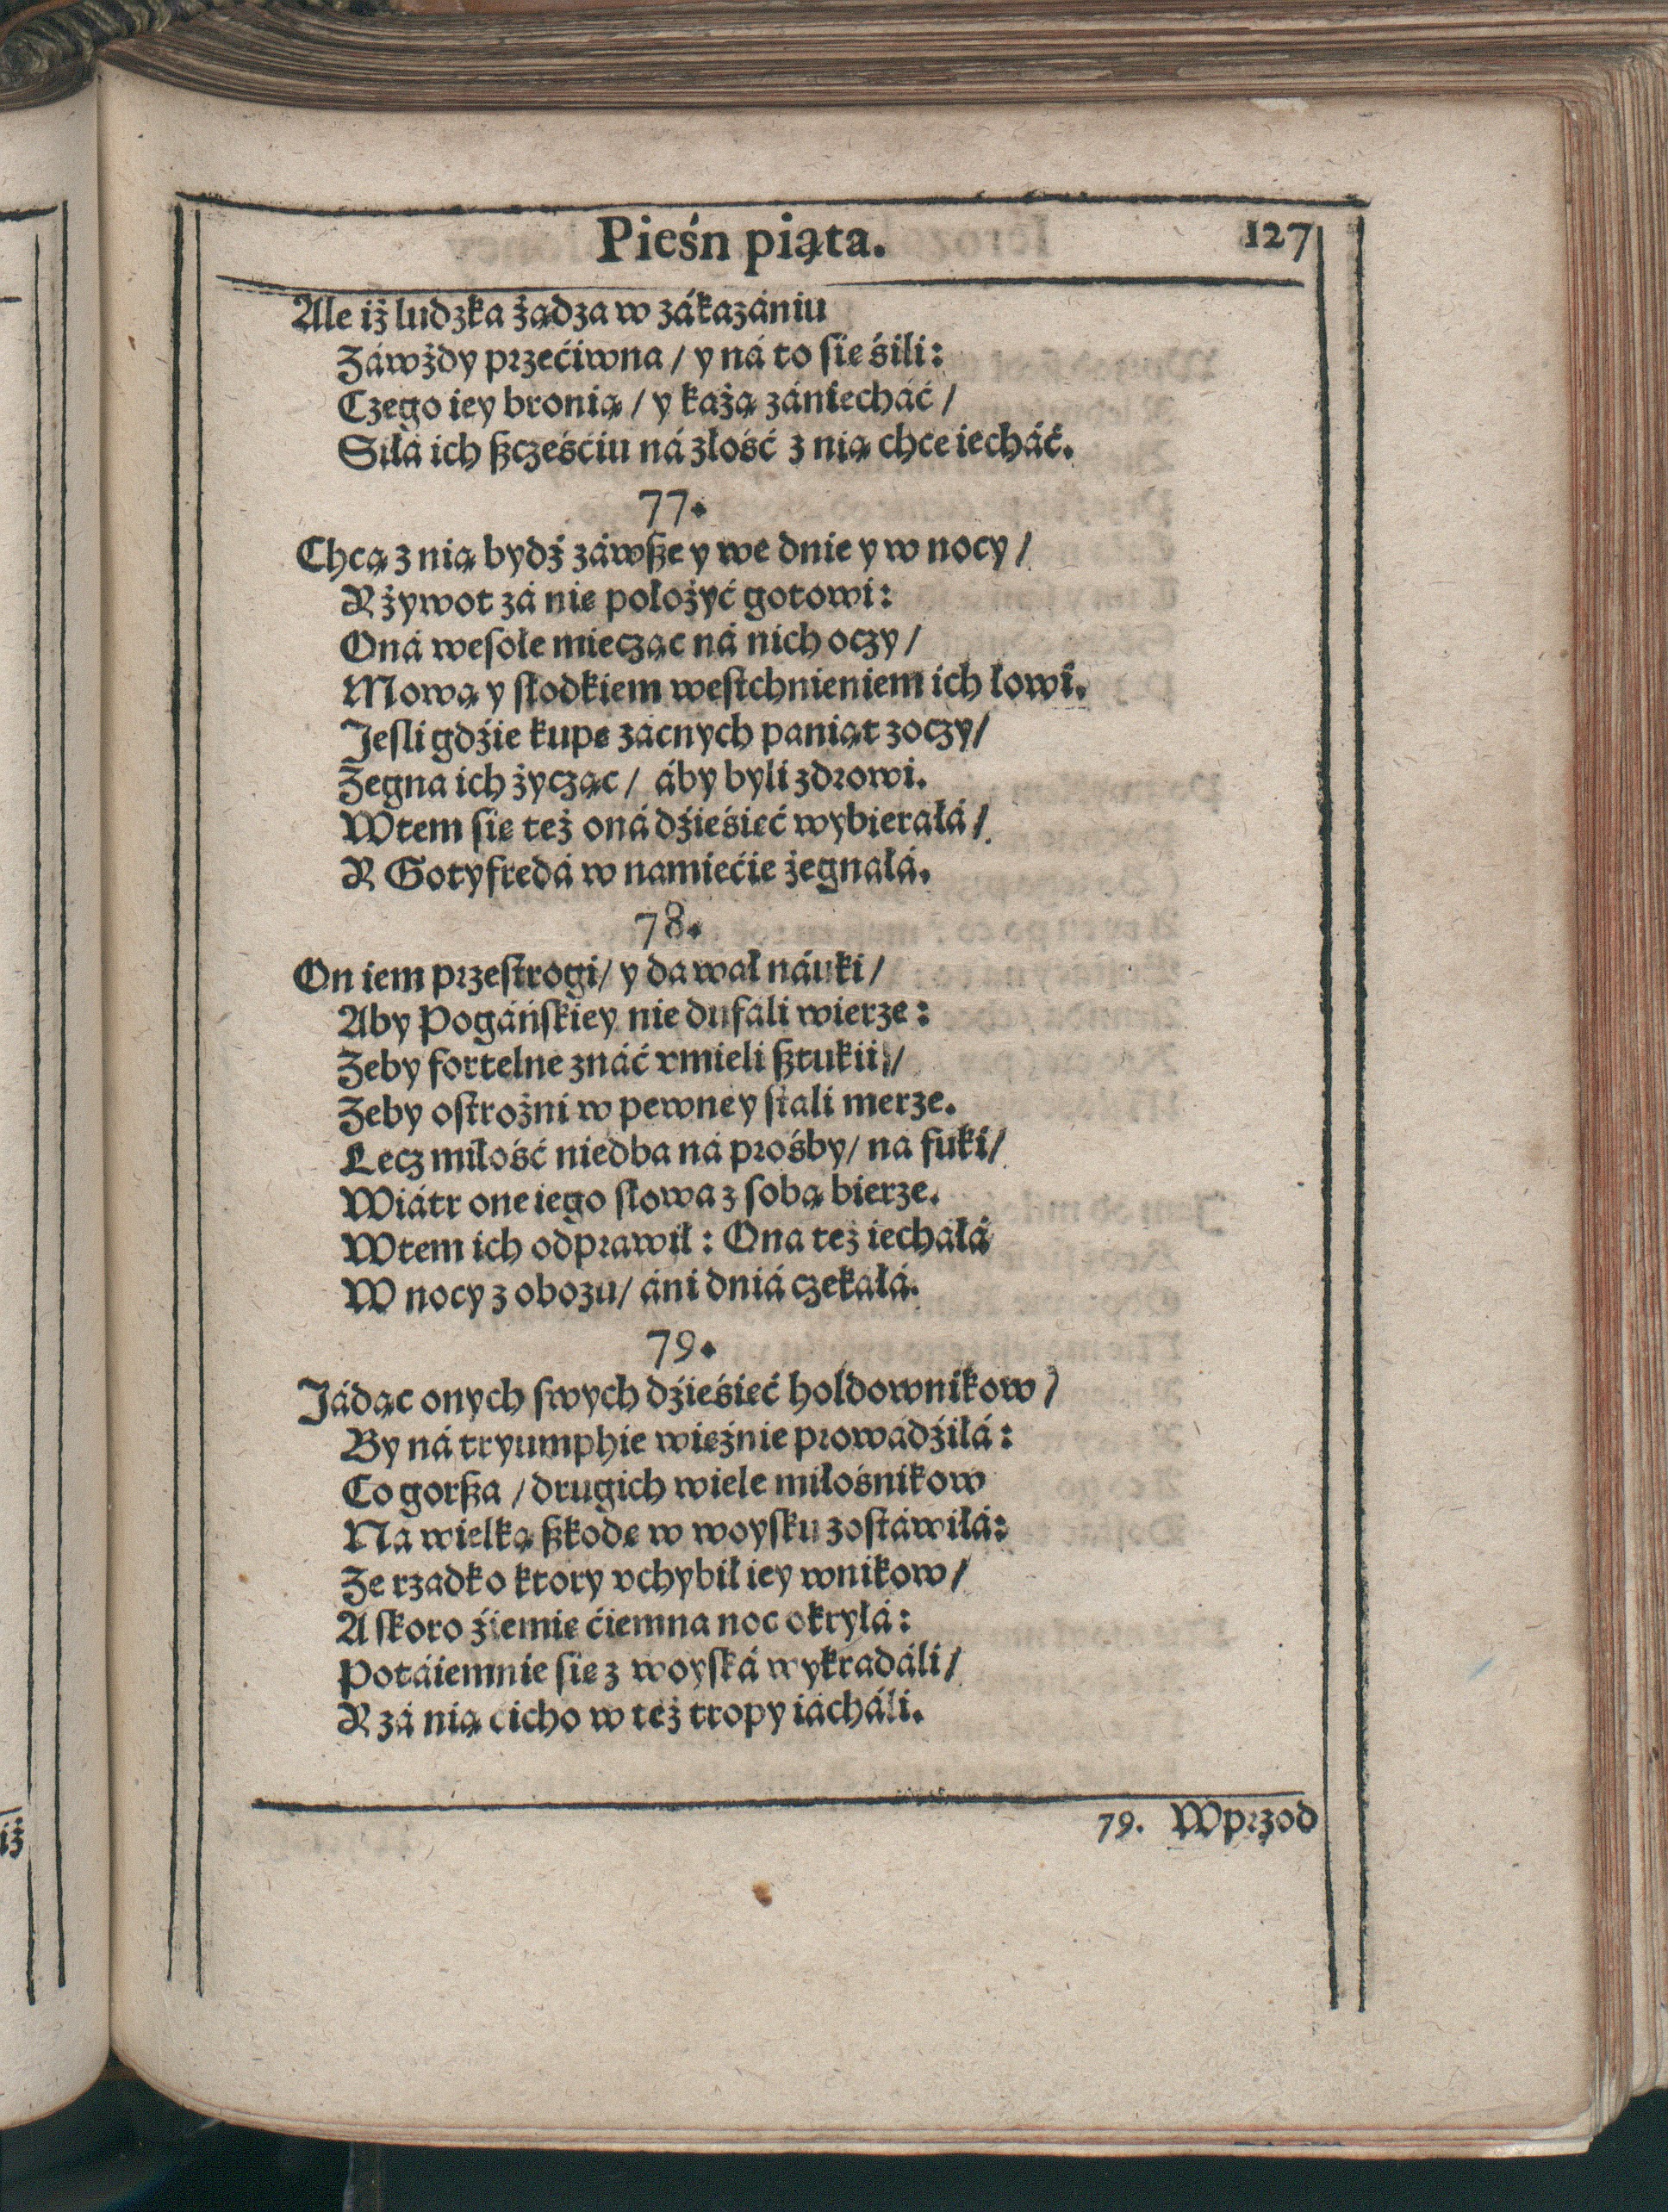 Pieśń piąta. 127
Ale iż ludzka żądza w zákazániu
Záwżdy przećiwna / y ná to sie śili:
Czego iey bronią / y każą zániecháć /
Siłá ich szczęśćiu ná złość z nią chce iecháć.
77.
Chcą z nią bydź záwsze y we dnie y w nocy /
Y żywot zá nię położyć gotowi:
Oná wesołe miecząc ná nich oczy /
Mową y słodkiem westchnieniem ich łowi.
Jesli gdźie kupę zacnych paniąt zoczy /
Żegna ich życząc / áby byli zdrowi.
Wtem się też oná dźieśięć wybierałá /
Y Gotyfredá w namiećie żegnałá.
78.
On iem przestrogi / y dawał náuki /
Aby Pogáńskiey nie dufáli wierze:
Żeby fortelne znáć vmieli sztukii /
Żeby ostrożni w pewney stali merze.
Lecz miłość niedba ná prośby / na fuki /
Wiátr one iego słowa z sobą bierze.
Wtem ich odprawił: Ona też iechałá
W nocy z obozu / áni dniá czekałá.
79.
Jádąc onych swych dźieśięć holdownikow /
By ná tryumphie więźnie prowadźiłá:
Co gorsza / drugich wiele miłośnikow
Na wielką szkodę w woysku zostáwiłá:
Że rzadko ktory vchybił iey wnikow /
A skoro źiemię ćiemna noc okryłá:
Potáiemnie się z woyská wykradáli /
Y zá nią cicho w też tropy iácháli.
79. Wprzod
iż